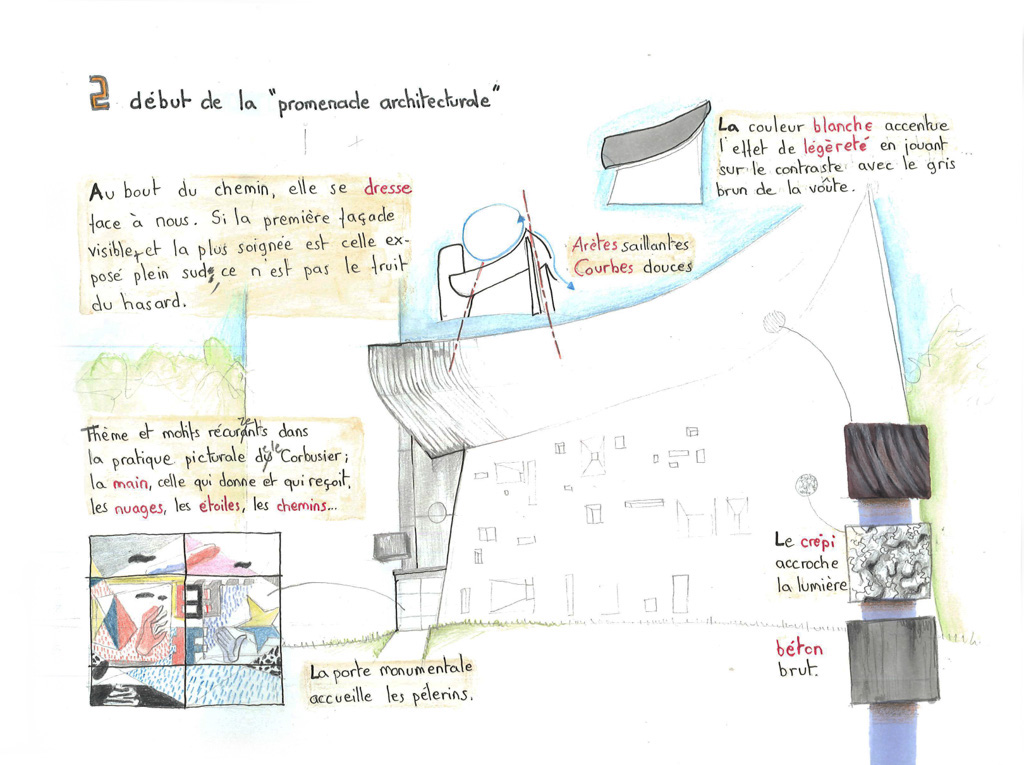 2 début de la "promenade architecturale"
Au bout du chemin, elle se dresse
face à nous. Si la première façade
visible, et la plus soignée est celle ex-
posé plein sud, ce n'est pas le fruit
du hasard.
La couleur blanche accentue
l'effet de légèreté en jouant
sur le contraste avec le gris
brun de la voûte.
Arêtes saillantes
Courbes douces
Thème et motifs récurents dans
la pratique picturale de le Corbusier;
la main, celle qui donne et qui reçoit,
les nuages, les étoiles, les chemins...
Le crépi
accroche
la lumière
béton
brut.
La porte monumentale
accueille les pélerins.